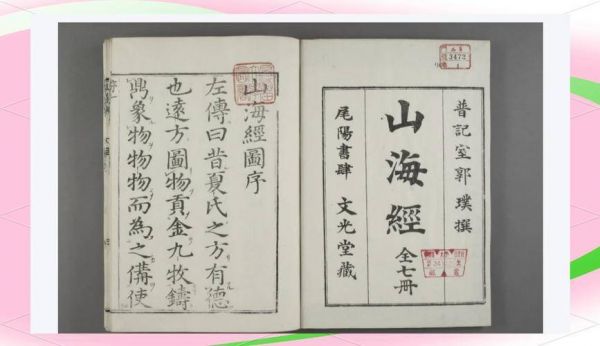 晉記室郭璞撰
山海經 全七冊
尾陽書肆 文光堂藏
3472
山海經圖序
左傳曰昔夏氏之方有德
也遠方圖物貢金九牧鑄
鼎象物物物而為之備使